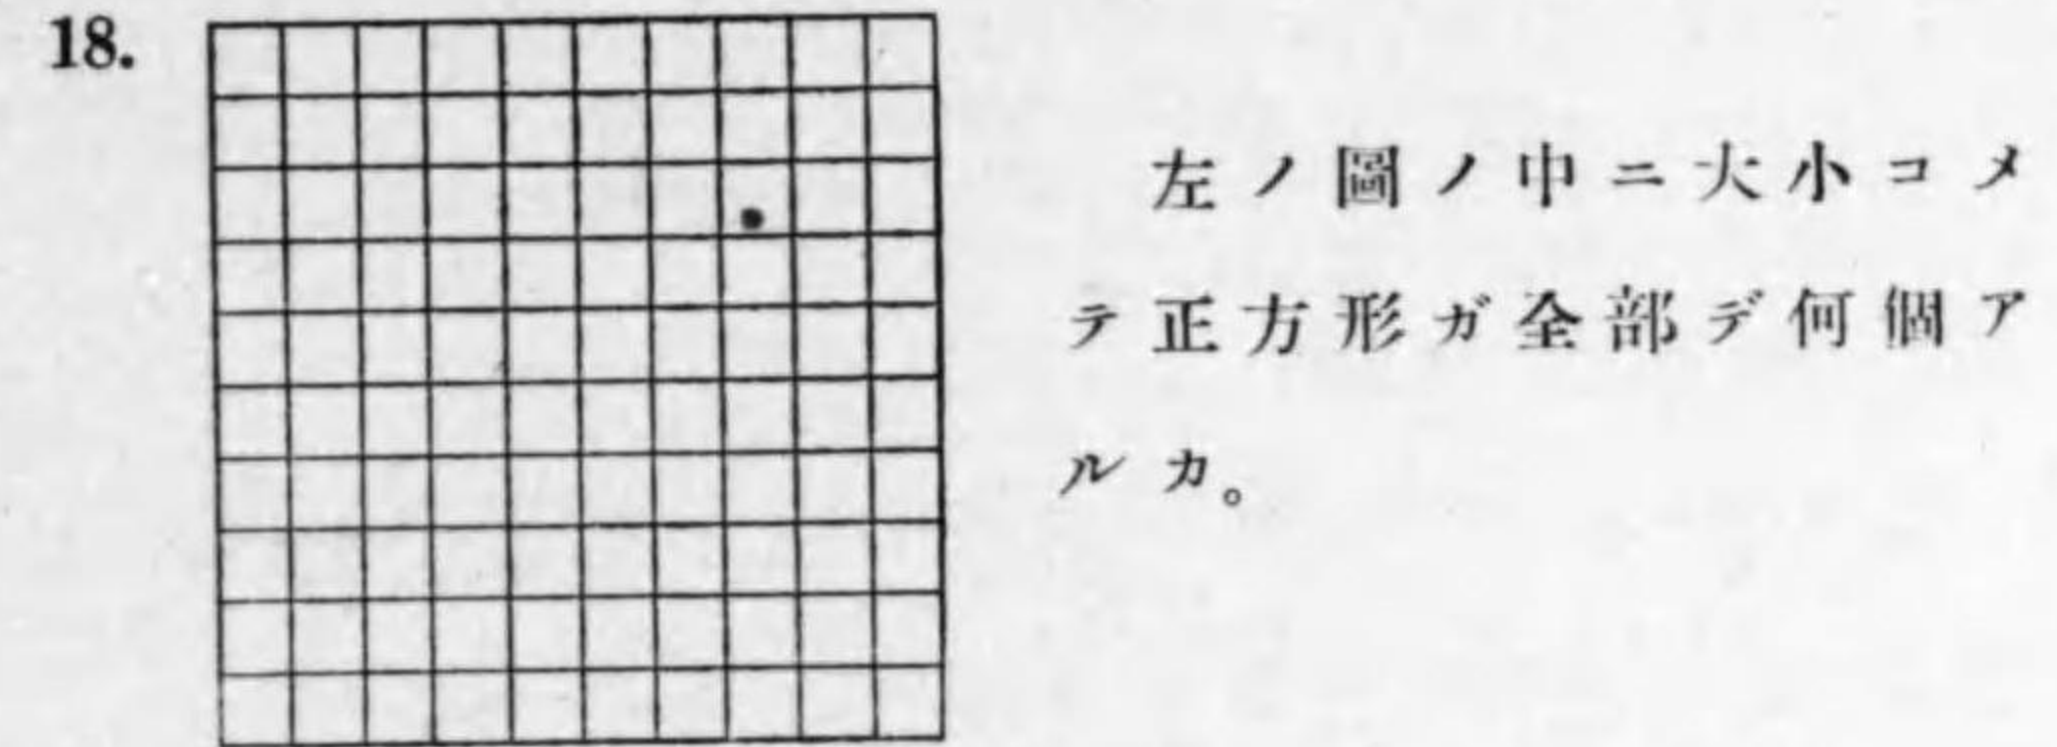 18.
左ノ圖ノ中ニ大小コメ
テ正方形ガ全部デ何個ア
ルカ。